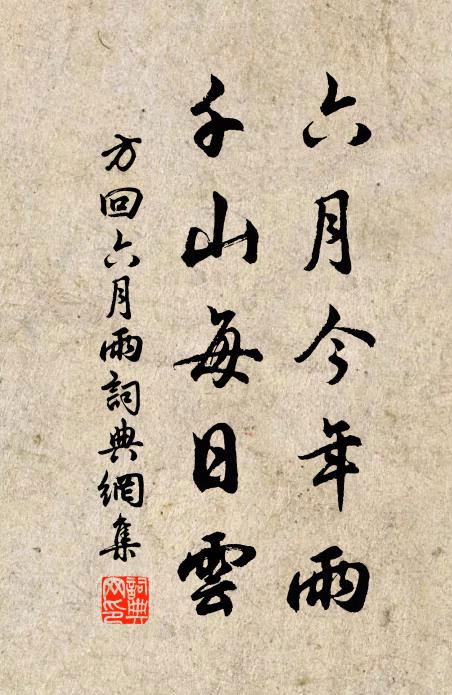 六月今年雨
千山每日雲
方回六月雨詞典網集
詞典网印